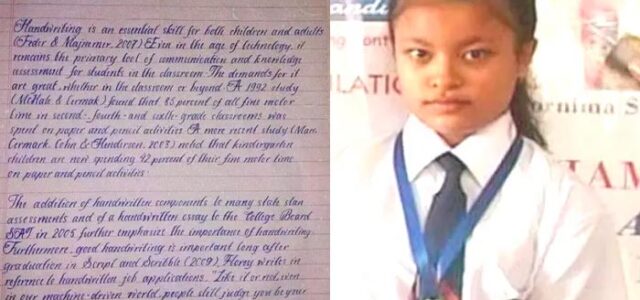 Handwriting is an essential skill for both children and adults
(Feder & Majnemer, 2007) Even in the age of technology, it
remains the primary tool of communication and knowledge
assessment for students in the classroom. The demands for it
are great, whether in the classroom or beyond A 1992 study
(McHale & Cermak) found that 85 percent of all fine motor
time in second- fourth- and sixth-grade classrooms was
spent on paper and pencil activities A more recent study (Marr,
Cermack, Cohn & Henderson, 2003) noted that kindergarten
children are now spending 42 percent of their fine motor time
on paper and pencil activities.
The addition of handwritten components to many state
assessments and of a handwritten essay to the College Board
SAT in 2005 further emphasize the importance of handwriting
Furthermore, good handwriting is important long after
graduation in Script and Scribble (2009), Florey writes in
reference to handwritten job applications, "Like it or not, even
in our machine-driven world, people still judge you by your